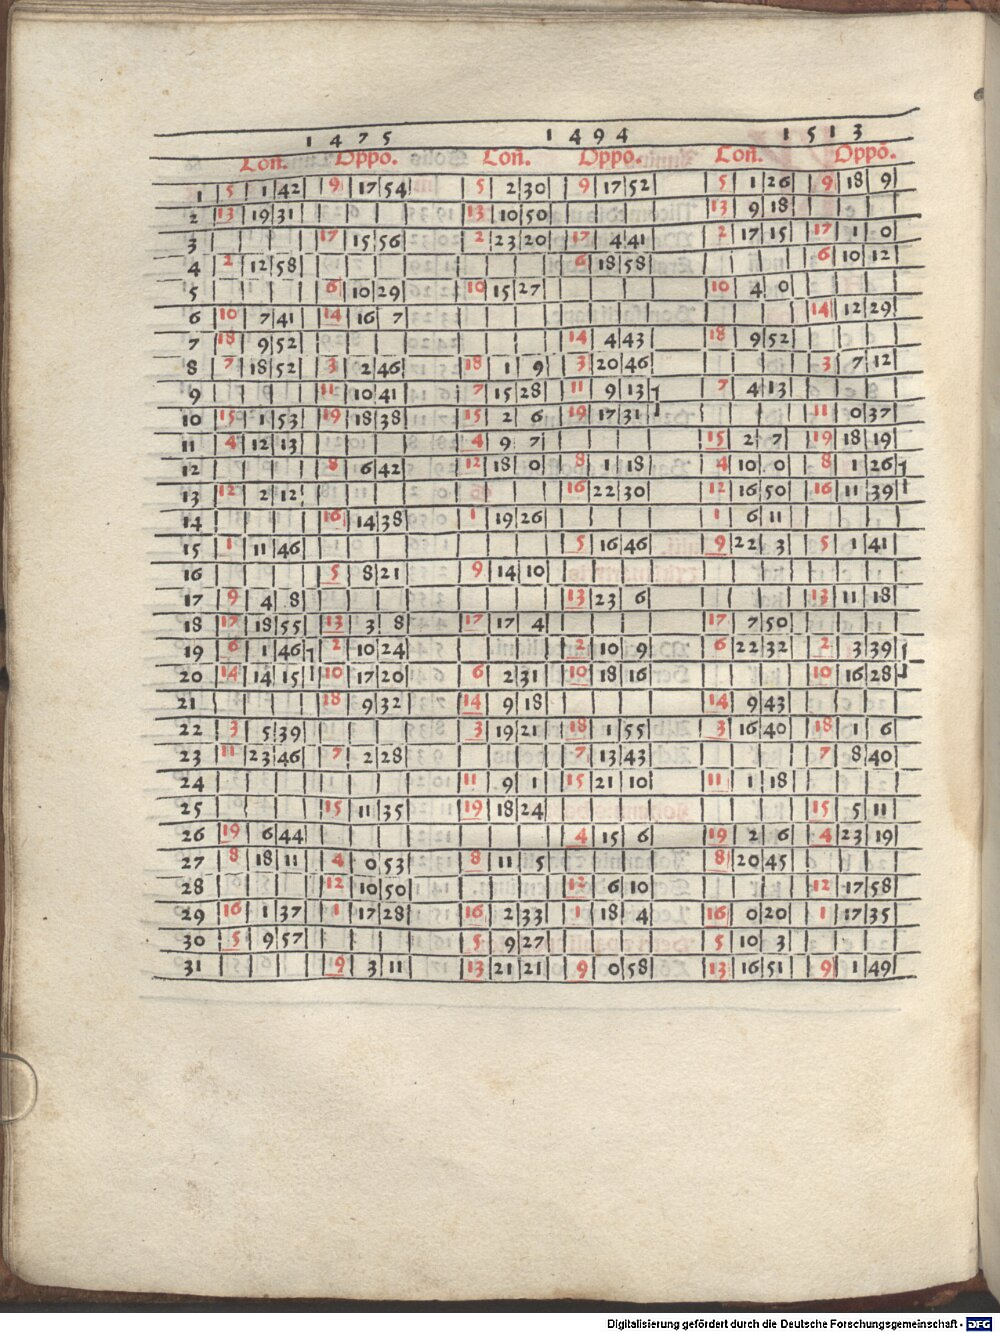 1 4 7 5 1 4 9 4 1 5 1 3
Coñ. Oppo. Coñ. Oppo. Coñ. Oppo.
1 5 1 42 9 17 54 5 2 30 9 17 52 5 1 26 9 18 9
2 13 19 31 13 10 50 13 9 18
3 17 15 56 2 23 20 17 4 41 2 17 15 17 1 0
4 2 12 58 6 18 58 6 10 12
5 6 10 29 10 15 27 10 4 0
6 10 7 41 14 16 7 14 12 29
7 18 9 52 14 4 43 18 9 52
8 7 18 52 3 2 46 18 1 9 3 20 46 3 7 12
9 11 10 41 7 15 28 11 9 13 7 4 13
10 15 1 53 19 18 38 15 2 6 19 17 31 11 0 37
11 4 12 13 4 9 7 15 2 7 19 18 19
12 8 6 42 12 18 0 8 1 18 4 10 0 8 1 26
13 12 2 12 16 22 30 12 16 50 16 11 39
14 16 14 38 1 19 26 1 6 11
15 1 11 46 5 16 46 9 22 3 5 1 41
16 5 8 21 9 14 10
17 9 4 8 13 23 6 13 11 18
18 17 18 55 13 3 8 17 17 4 17 7 50
19 6 1 46 2 10 24 2 10 9 6 22 32 2 3 39
20 14 14 15 10 17 20 6 2 31 10 18 16 10 16 28
21 18 9 32 14 9 18 14 9 43
22 3 5 39 3 19 21 18 1 55 3 16 40 18 1 6
23 11 23 46 7 2 28 7 13 43 7 8 40
24 11 9 1 15 21 10 11 1 18
25 15 11 35 19 18 24 15 5 11
26 19 6 44 4 15 6 19 2 6 4 23 19
27 8 18 11 4 0 53 8 11 5 8 20 45
28 12 10 50 12 6 10 12 17 58
29 16 1 37 1 17 28 16 2 33 1 18 4 16 0 20 1 17 35
30 5 9 57 5 9 27 5 10 3
31 9 3 11 13 21 21 9 0 58 13 16 51 9 1 49
Digitalisierung gefördert durch die Deutsche Forschungsgemeinschaft - DFG